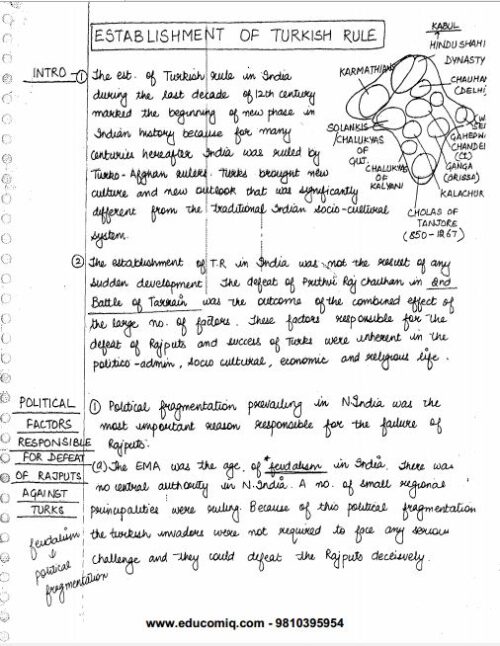 ESTABLISHMENT OF TURKISH RULE
KABUL
HINDUSHAHI
DYNASTY
KARMATHIANS
CHAUHA
(DELHI)
SOLANKIS
CHALUKYAS
OF
GUJ.
CHALUKYAS
OF
KALYANI
GAHEDW
CHANDEL
GANGA
(ORISSA)
KALACHUR
CHOLAS OF
TANJORE
(850-1267)
INTRO - ① The est. of Turkish rule in India
during the last decade of 12th century
marked the beginning of new phase in
Indian history because for many
centuries hereafter India was ruled by
Turko-Afghan rulers. Turks brought new
culture and new outlook that was significantly
different from the traditional Indian socio-cultural
system.
② The establishment of T.R in India was not the result of any
sudden development. The defeat of Prithvi Raj chauhan in 2nd
Battle of Tarrain was the outcome of the combined effect of
the large no. of factors. These factors responsible for the
defeat of Rajputs and success of Turks were inherent in the
politico-admin, socio cultural, economic and religious life.
POLITICAL
FACTORS
RESPONSIBLE
FOR DEFEAT
OF RAJPUTS
AGAINST
TURKS
feudalism
↓
political
fragmentation
① Political fragmentation prevailing in N.India was the
most important reason responsible for the failure of
Rajputs.
(a) The EMA was the age of *feudalism in India. There was
no central authority in N.India. A no. of small regional
principalities were ruling. Because of this political fragmentation
the turkish invaders were not required to face any serious
challenge and they could defeat the Rajputs decisively.
www.educomiq.com - 9810395954